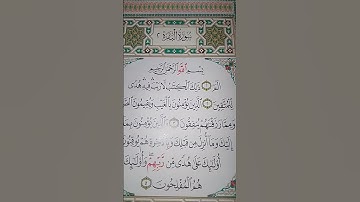 سورة البقرة ٢
بسم الله الرحمن الرحيم
الم ١ ذلك الكتب لا ريب فيه هدى
للمتقين ٢ الذين يؤمنون بالغيب ويقيمون
ومما رزقنهم ينفقون ٣ والذين يؤمنون بما
إليك وما أنزل من قبلك وبالءاخرة هم يوقنون
أولئك على هدى من ربهم وأولئك
هم المفلحون ٥